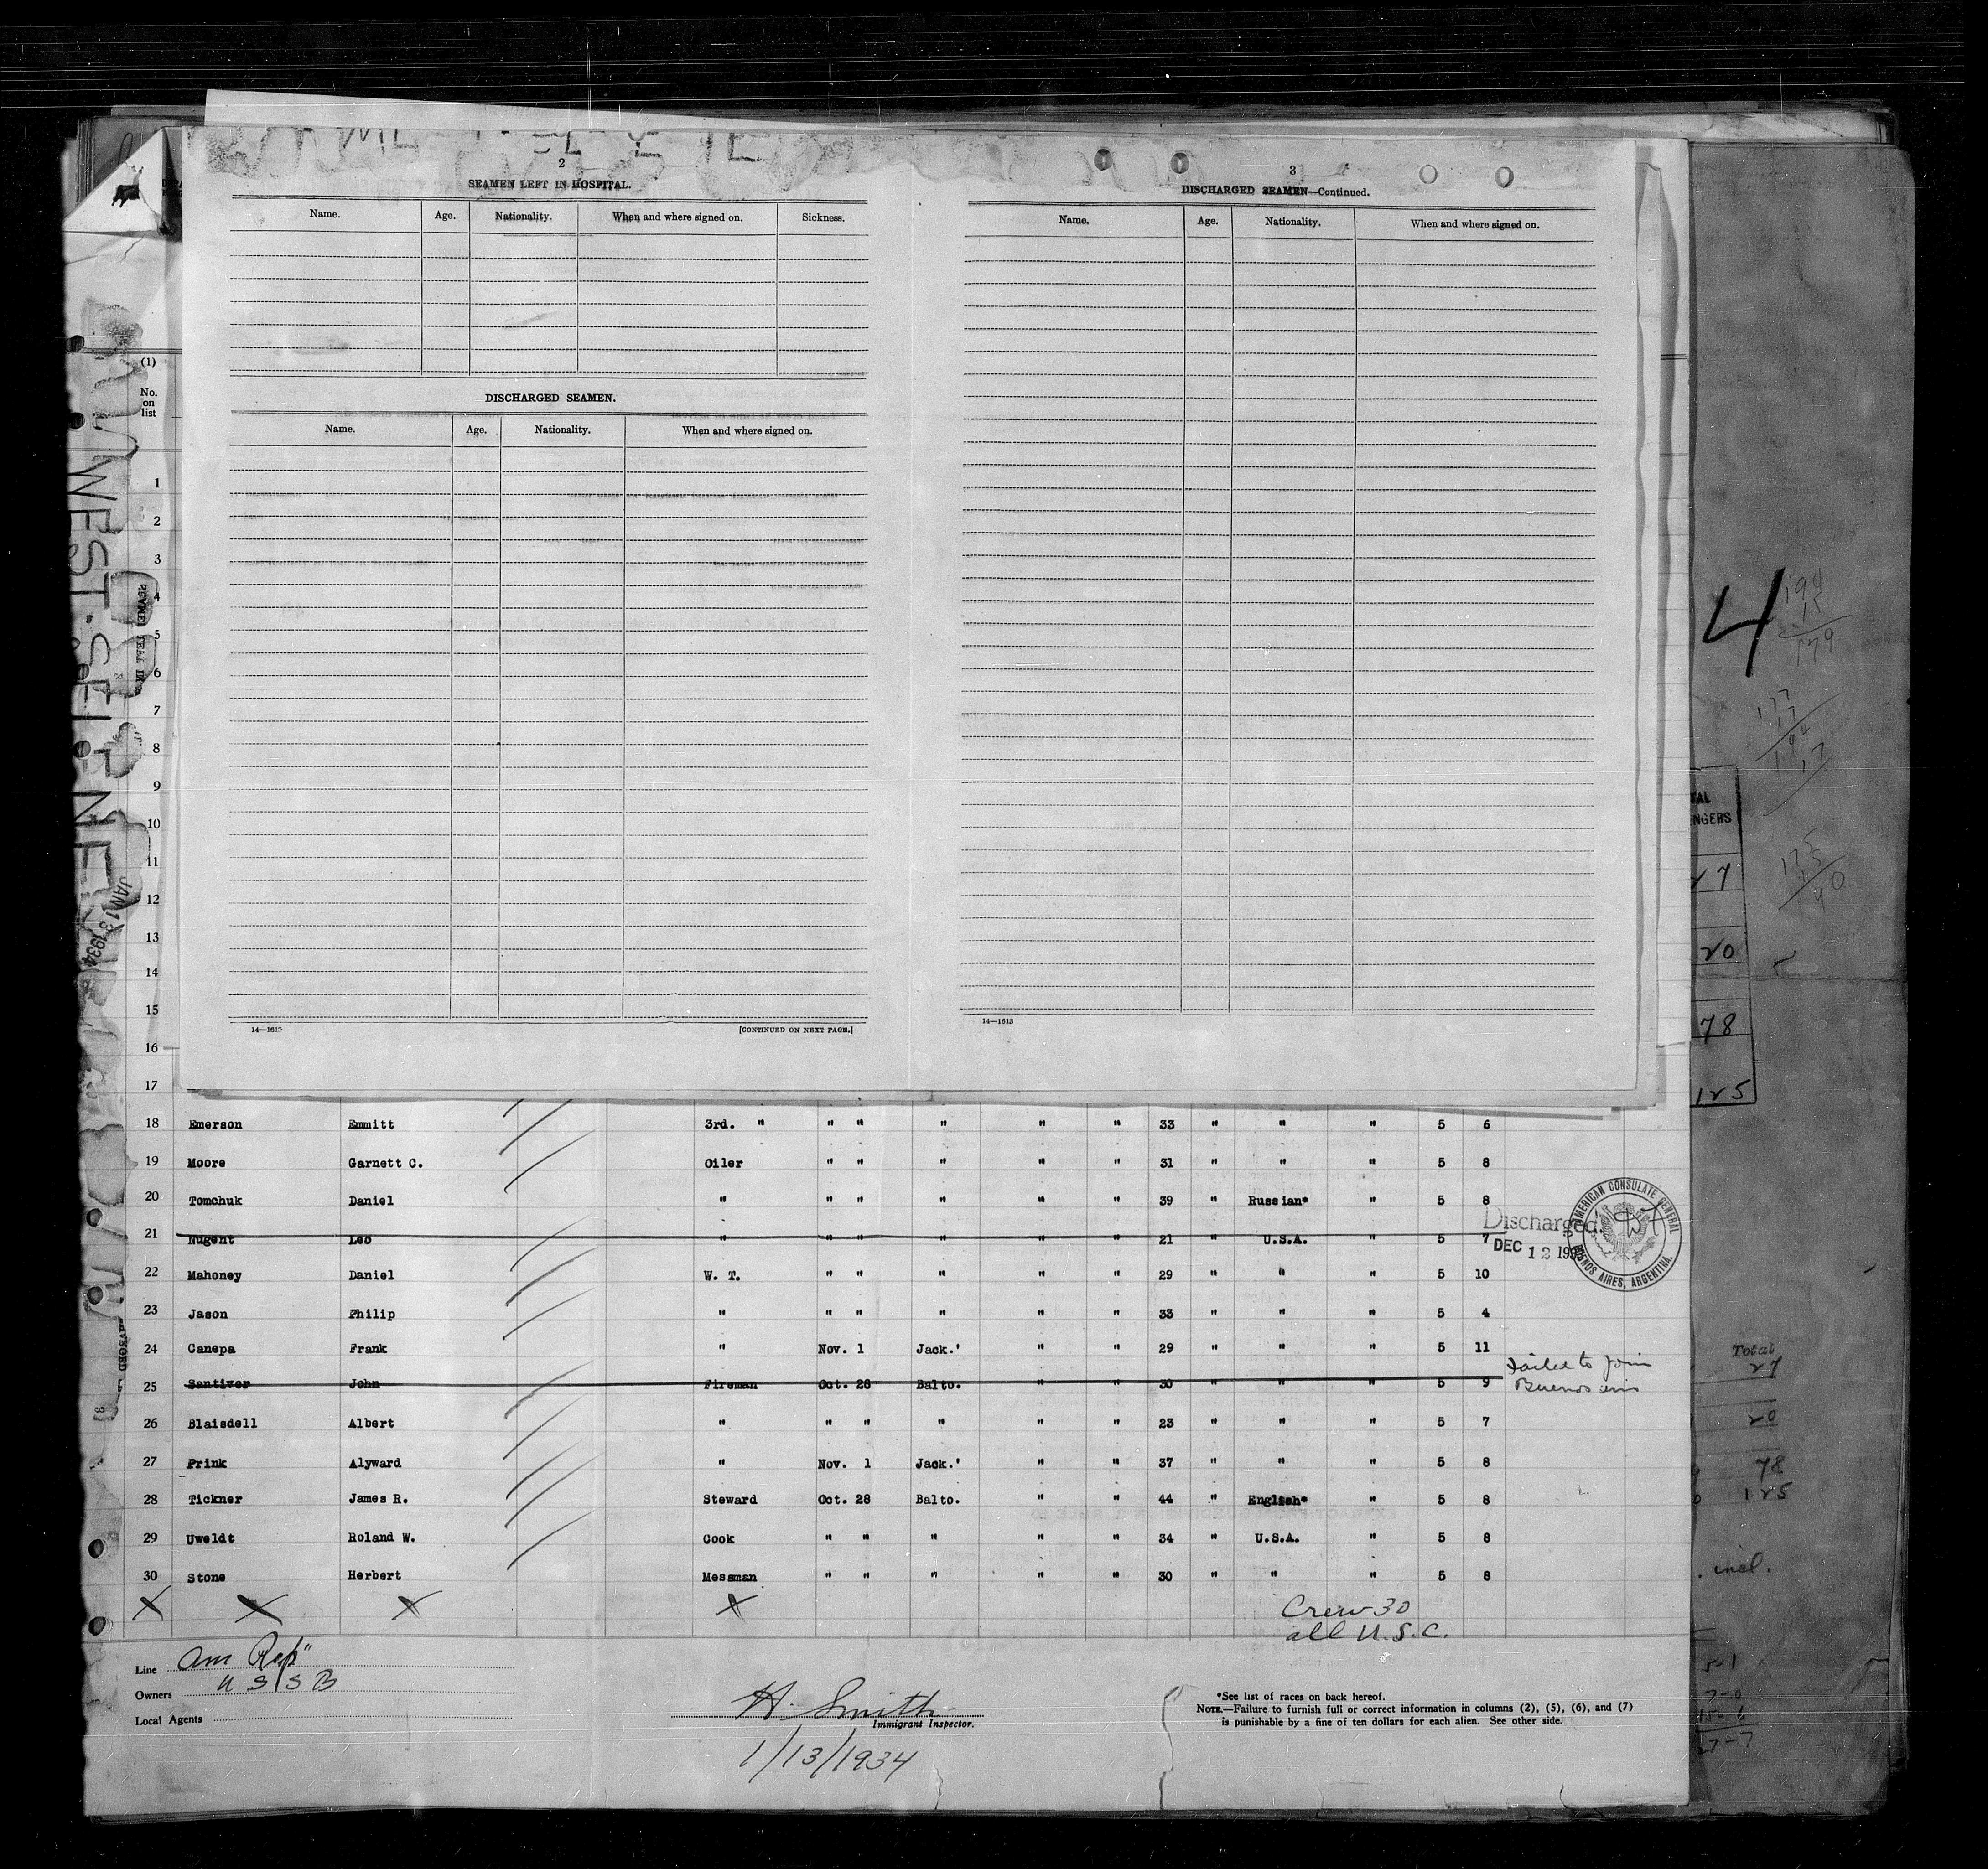 2
SEAMEN LEFT IN HOSPITAL.
Name. Age. Nationality. When and where signed on. Sickness.
DISCHARGED SEAMEN.
Name. Age. Nationality. When and where signed on.
[CONTINUED ON NEXT PAGE.]
3
DISCHARGED SEAMEN—Continued.
Name. Age. Nationality. When and where signed on.
14—1613
(1)
No.
on
list
WEST SELENE
JAN 13 1934
1
2
3
4
5
6
7
8
9
10
11
12
13
14
15
16
17
18 Emerson Emmitt 3rd. " " " " " " 33 " " " 5 6
19 Moore Garnett C. Oiler " " " " " 31 " " " 5 8
20 Tomchuk Daniel " " " " " " 39 " Russian* " 5 8
21 Nugent Leo " " " " " " 21 " U.S.A. " 5 7
Discharged
DEC 12
AMERICAN CONSULATE GENERAL
BUENOS AIRES, ARGENTINA.
22 Mahoney Daniel W. T. " " " " " 29 " " " 5 10
23 Jason Philip " " " " " " 33 " " " 5 4
24 Canepa Frank " Nov. 1 Jack.' " " 29 " " " 5 11
25 Santiver John Fireman Oct. 28 Balto. " " 30 " " " 5 9
Failed to join
Buenos
26 Blaisdell Albert " " " " " " 23 " " " 5 7
27 Prink Alyward " Nov. 1 Jack.' " " 37 " " " 5 8
28 Tickner James R. Steward Oct. 28 Balto. " " 44 " English* " 5 8
29 Uweldt Roland W. Cook " " " " " 34 " U.S.A. " 5 8
30 Stone Herbert Messman " " " " " 30 " " " 5 8
X X X X
Crew 30
all U.S.C.
Line Am Rep"
Owners U S S B
Local Agents
H. Smith
Immigrant Inspector.
1/13/1934
*See list of races on back hereof.
NOTE.—Failure to furnish full or correct information in columns (2), (5), (6), and (7)
is punishable by a fine of ten dollars for each alien. See other side.
4
179
20
78
125
Total
27
20
78
125
incl.